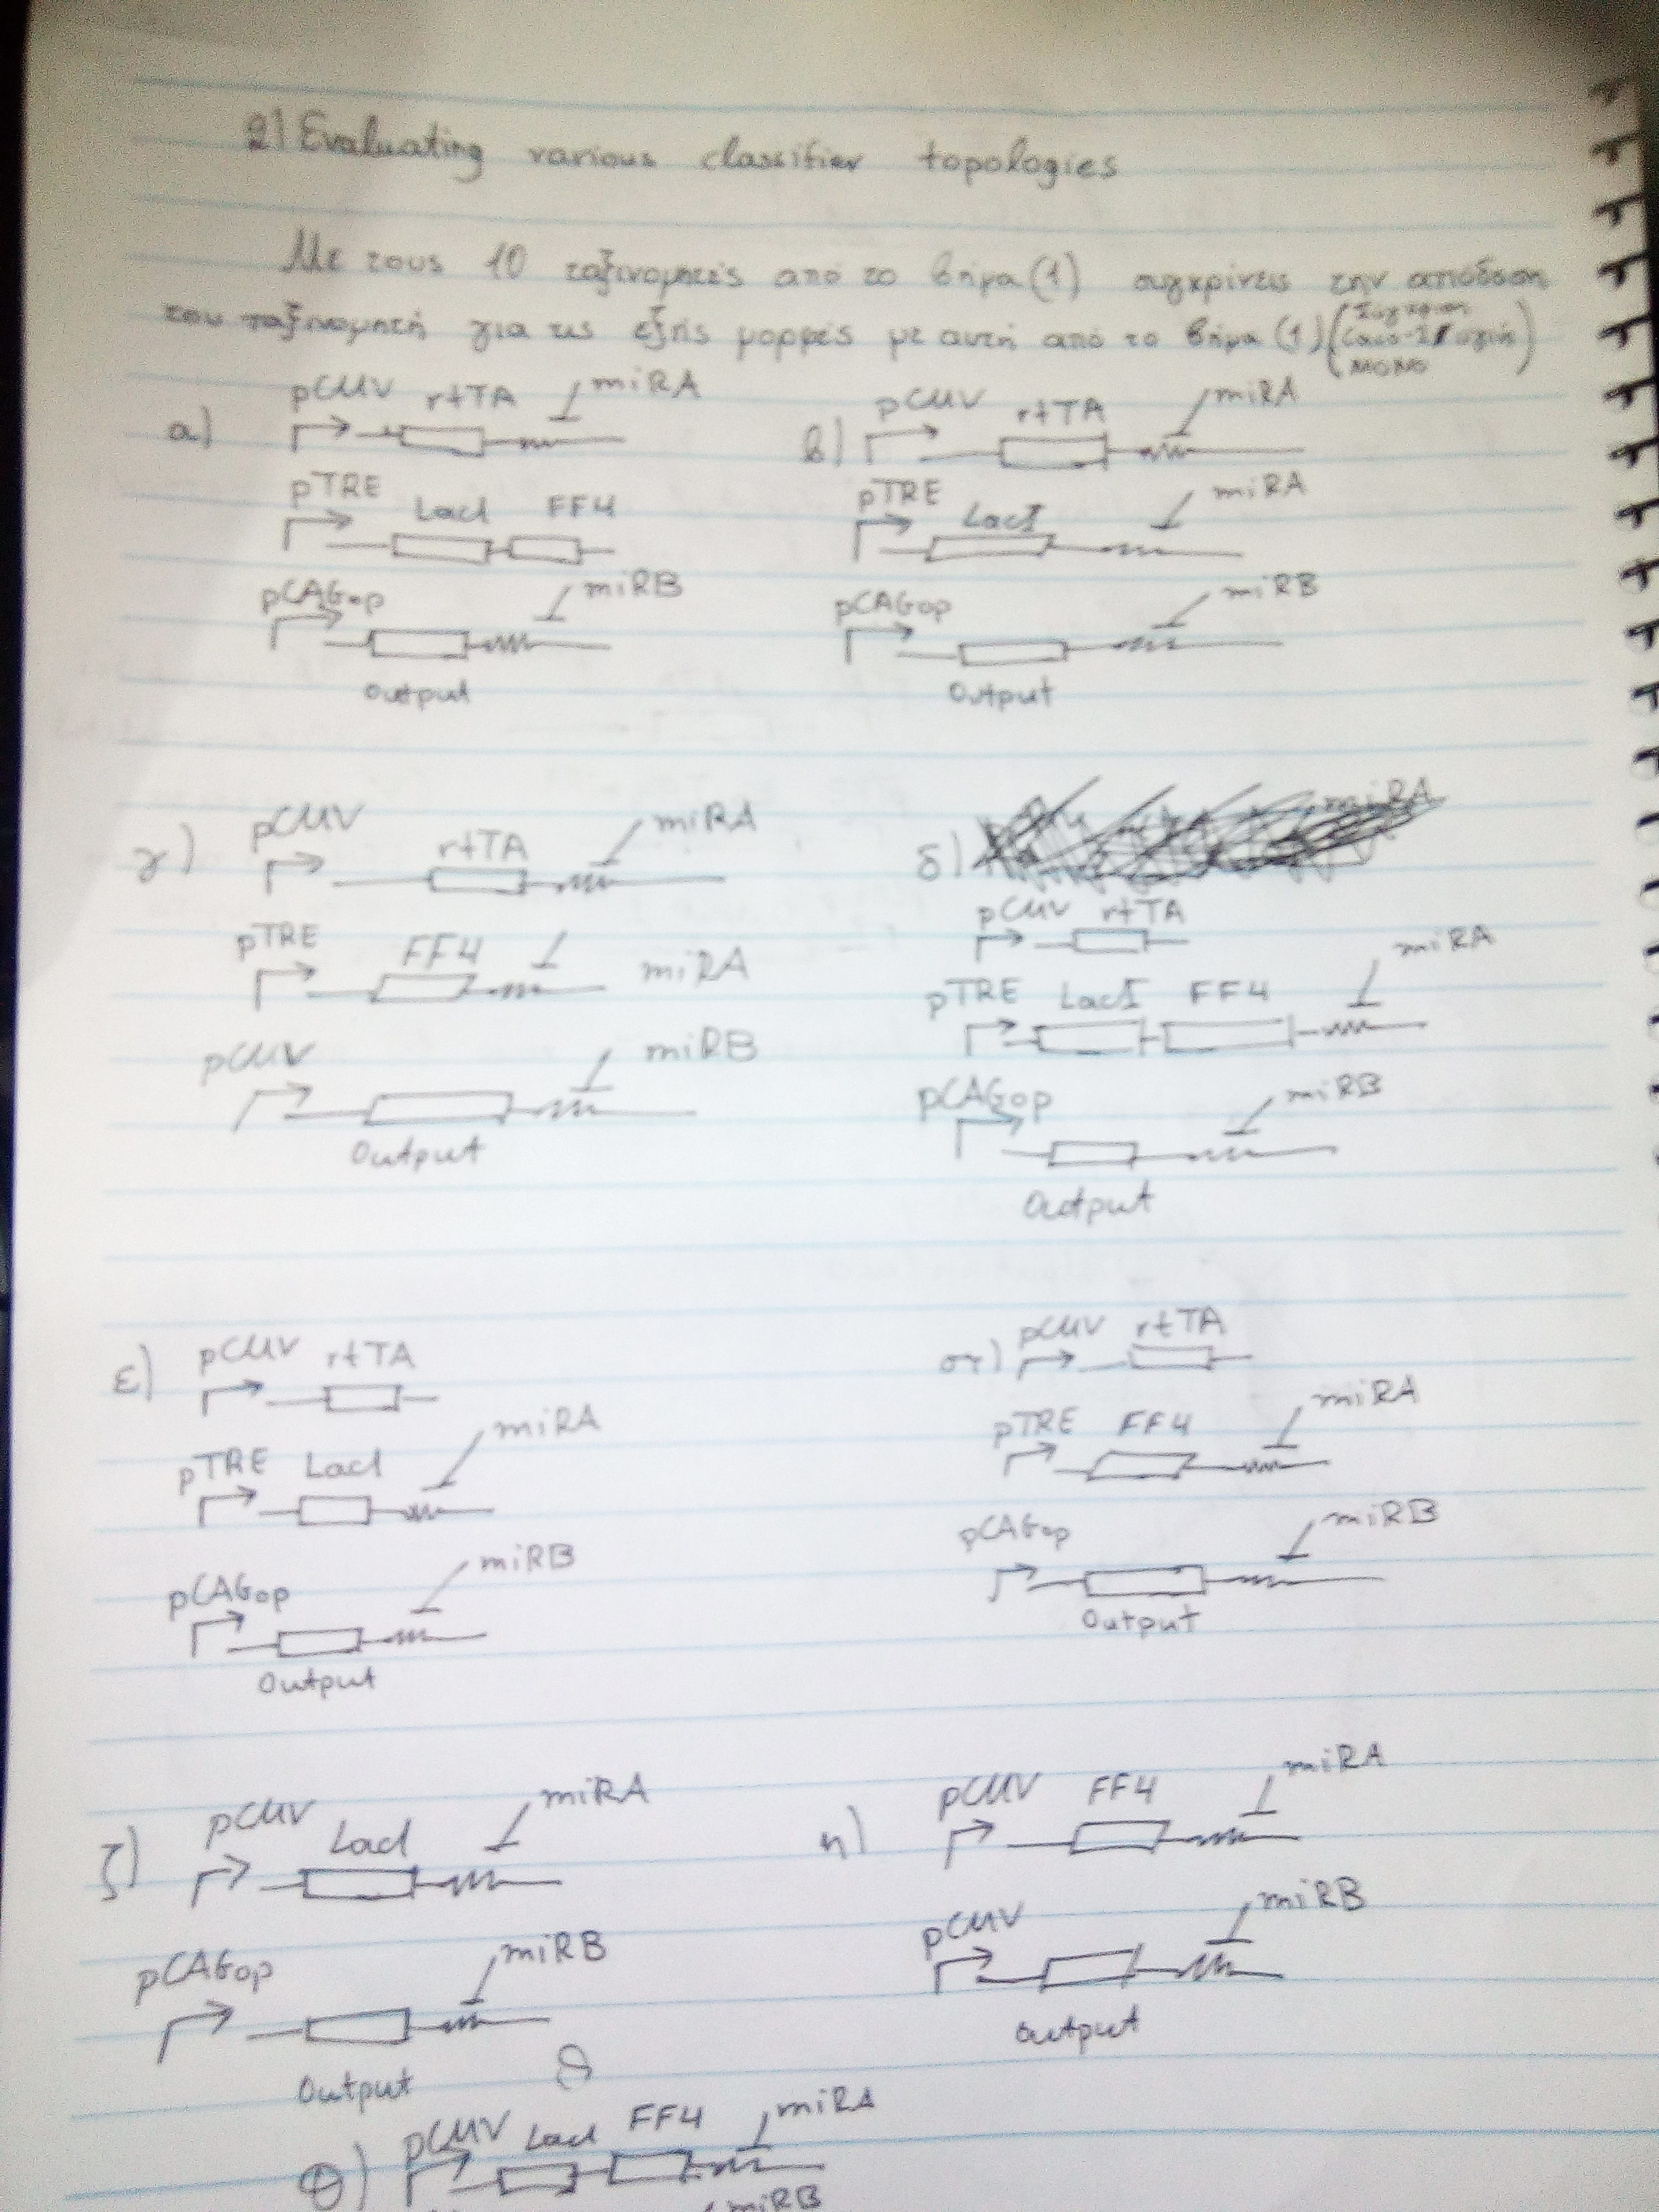 2) Evaluating various classifier topologies
Με τους 10 ταξινομητές από το βήμα (1) συγκρίνεις την απόδοση
του ταξινομητή για τις εξής μορφές με αυτή από το βήμα (1) (Σύγκριση
Caco-2/υγιή
ΜΟΝΟ)
α) pCMV rtTA miRA
pTRE LacI FF4
pCAGop miRB
Output
β) pCMV rtTA miRA
pTRE LacI miRA
pCAGop miRB
Output
γ) pCMV rtTA miRA
pTRE FF4 miRA
pCMV miRB
Output
δ) miRA
pCMV rtTA
pTRE LacI FF4 miRA
pCAGop miRB
Output
ε) pCMV rtTA
pTRE LacI miRA
pCAGop miRB
Output
στ) pCMV rtTA
pTRE FF4 miRA
pCAGop miRB
Output
ζ) pCMV LacI miRA
pCAGop miRB
Output
η) pCMV FF4 miRA
pCMV miRB
Output
θ) pCMV LacI FF4 miRA
miRB